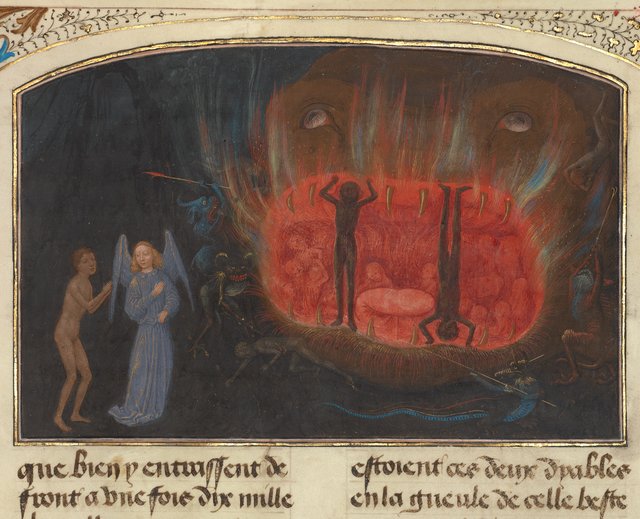 que bien y entrassent de
front a vne fois dix mille
estoient ces deux dyables
en la gueule de celle beste